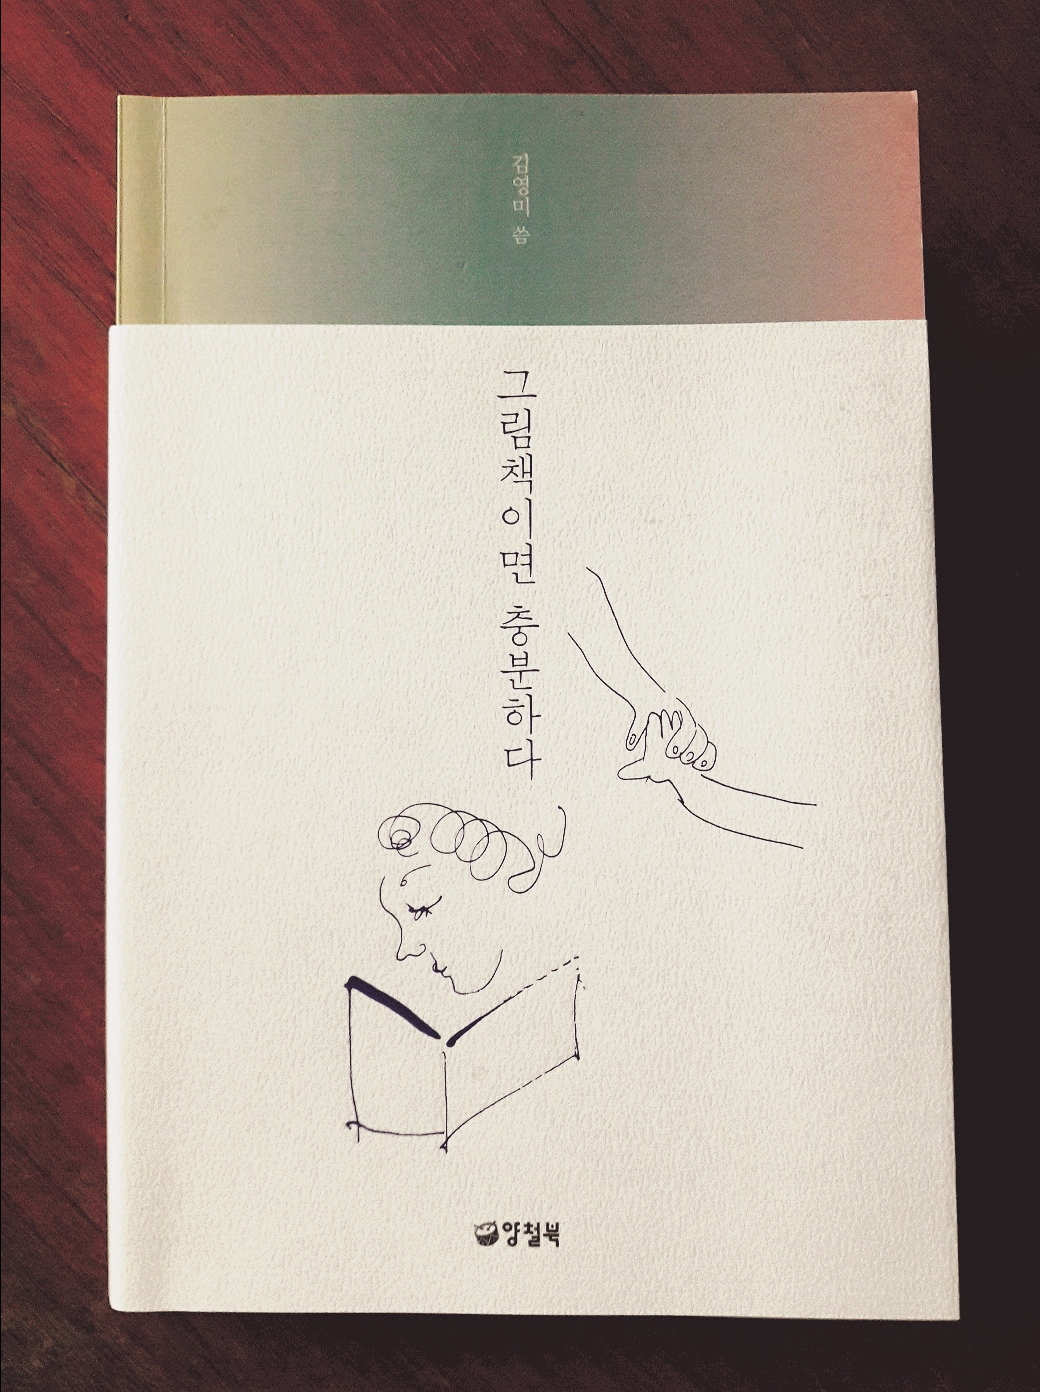 김영미 씀
그림책이면 충분하다
양철북